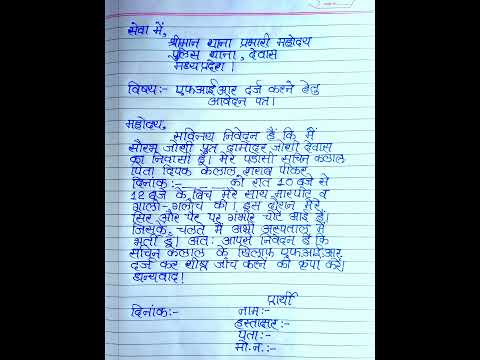 सेवा में,
श्रीमान थाना प्रभारी महोदय
पुलिस थाना, देवास
मध्यप्रदेश।
विषय:- एफआईआर दर्ज करने हेतु
आवेदन पत्र।
महोदय,
सविनय निवेदन है कि मैं
सौरभ जोशी पुत्र दामोदर जोशी देवास
का निवासी हूँ। मेरे पड़ोसी सचिन कलाल
पिता दिपक कलाल शराब पीकर
दिनांक:- ______ को रात 10 बजे से
12 बजे के बिच मेरे साथ मारपीट व
गाली-गलोच की। इस दौरान मेरे
सिर और पैर पर गंभीर चोटे आई हैं।
जिसके, चलते मैं अभी अस्पताल में
भर्ती हूँ। अत: आपसे निवेदन है कि
सचिन कलाल के खिलाफ एफआईआर
दर्ज कर शीघ्र जाँच करने की कृपा करे।
धन्यवाद!
प्रार्थी
दिनांक:- नाम:-
हस्ताक्षर:-
पता:-
मो.न.:-